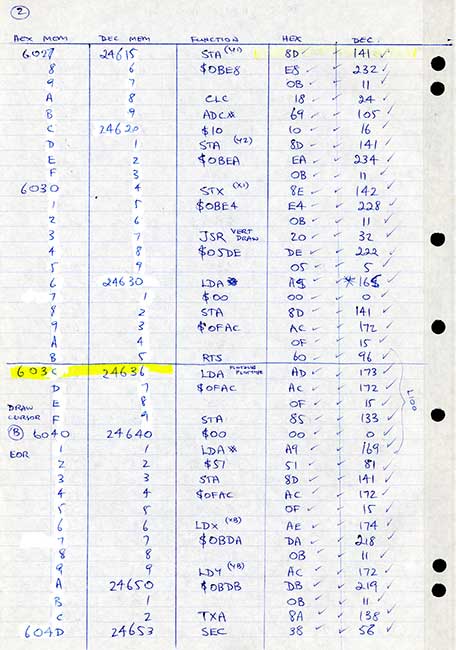 ②
HEX MEM DEC MEM FUNCTION HEX DEC
6027 24615 STA (Y1) 8D ✓ 141 ✓
8 6 $0BE8 E8 ✓ 232 ✓
9 7 0B ✓ 11 ✓
A 8 CLC 18 ✓ 24 ✓
B 9 ADC# 69 ✓ 105 ✓
C 24620 $10 10 ✓ 16 ✓
D 1 STA (Y2) 8D ✓ 141 ✓
E 2 $0BEA EA ✓ 234 ✓
F 3 0B ✓ 11 ✓
6030 4 STX (X1) 8E ✓ 142 ✓
1 5 $0BE4 E4 ✓ 228 ✓
2 6 0B ✓ 11 ✓
3 7 JSR VERT DRAW 20 ✓ 32 ✓
4 8 $05DE DE ✓ 222 ✓
5 9 05 ✓ 5 ✓
6 24630 LDA *165 ✓
7 1 $00 00 ✓ 0 ✓
8 2 STA 8D ✓ 141 ✓
9 3 $0FAC AC ✓ 172 ✓
A 4 0F ✓ 15 ✓
B 5 RTS 60 ✓ 96 ✓
603C 24636 LDA AD ✓ 173 ✓
D 7 $0FAC AC ✓ 172 ✓
E 8 0F ✓ 15 ✓
DRAW CURSOR F 9 STA 85 ✓ 133 ✓
Ⓑ 6040 24640 $00 00 ✓ 0 ✓
EOR 1 1 LDA# A9 ✓ 169 ✓
2 2 $51 51 ✓ 81 ✓
3 3 STA 8D ✓ 141 ✓
4 4 $0FAC AC ✓ 172 ✓
5 5 0F ✓ 15 ✓
6 6 LDX (XB) AE ✓ 174 ✓
7 7 $0BDA DA ✓ 218 ✓
8 8 0B ✓ 11 ✓
9 9 LDY (YB) AC ✓ 172 ✓
A 24650 $0BDB DB ✓ 219 ✓
B 1 0B ✓ 11 ✓
C 2 TXA 8A ✓ 138 ✓
604D 24653 SEC 38 ✓ 56 ✓